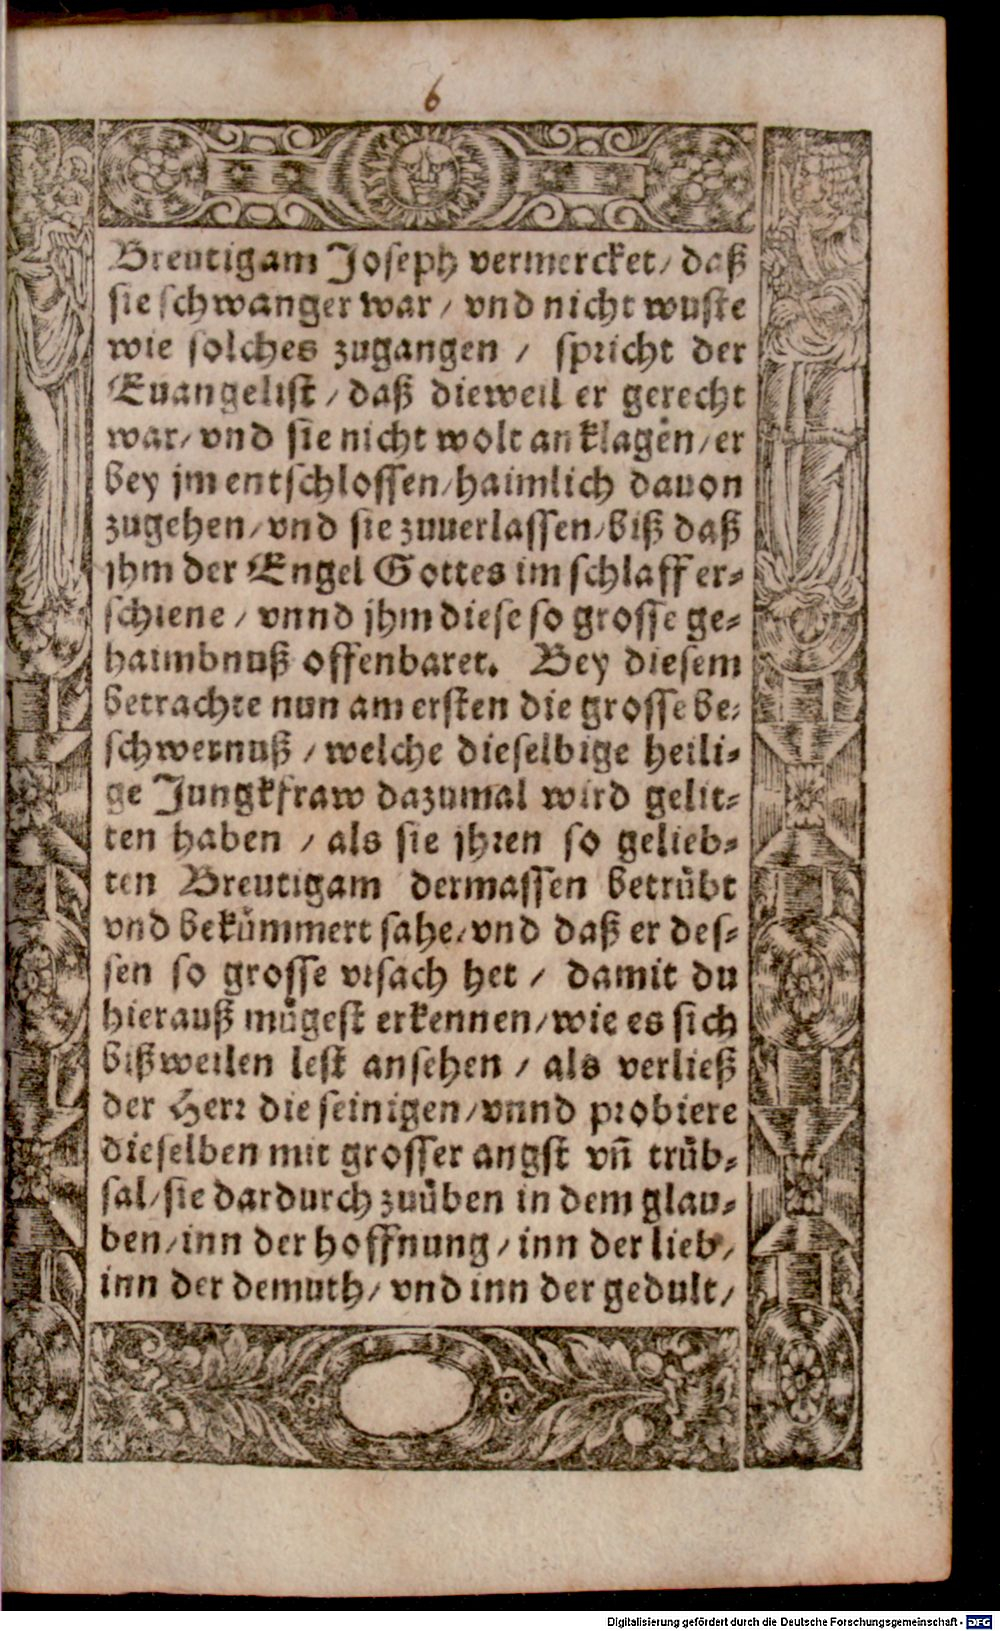 6
Breutigam Joseph vermercket/ daß
sie schwanger war / vnd nicht wuste
wie solches zugangen / spricht der
Euangelist / daß dieweil er gerecht
war/ vnd sie nicht wolt anklagen/ er
bey jm entschlossen/ haimlich dauon
zugehen/ vnd sie zuuerlassen/ biß daß
jhm der Engel Gottes im schlaff er-
schiene / vnnd jhm diese so grosse ge-
haimbnuß offenbaret. Bey diesem
betrachte nun am ersten die grosse be-
schwernuß / welche dieselbige heili-
ge Jungkfraw dazumal wird gelit-
ten haben / als sie jhren so gelieb-
ten Breutigam dermassen betrübt
vnd bekümmert sahe/ vnd daß er des-
sen so grosse vrsach het / damit du
hierauß mügest erkennen/ wie es sich
bißweilen lest ansehen / als verließ
der Herr die seinigen/ vnnd probiere
dieselben mit grosser angst vñ trüb-
sal/ sie dardurch zuüben in dem glau-
ben/ inn der hoffnung/ inn der lieb/
inn der demuth/ vnd inn der gedult/
Digitalisierung gefördert durch die Deutsche Forschungsgemeinschaft - DFG